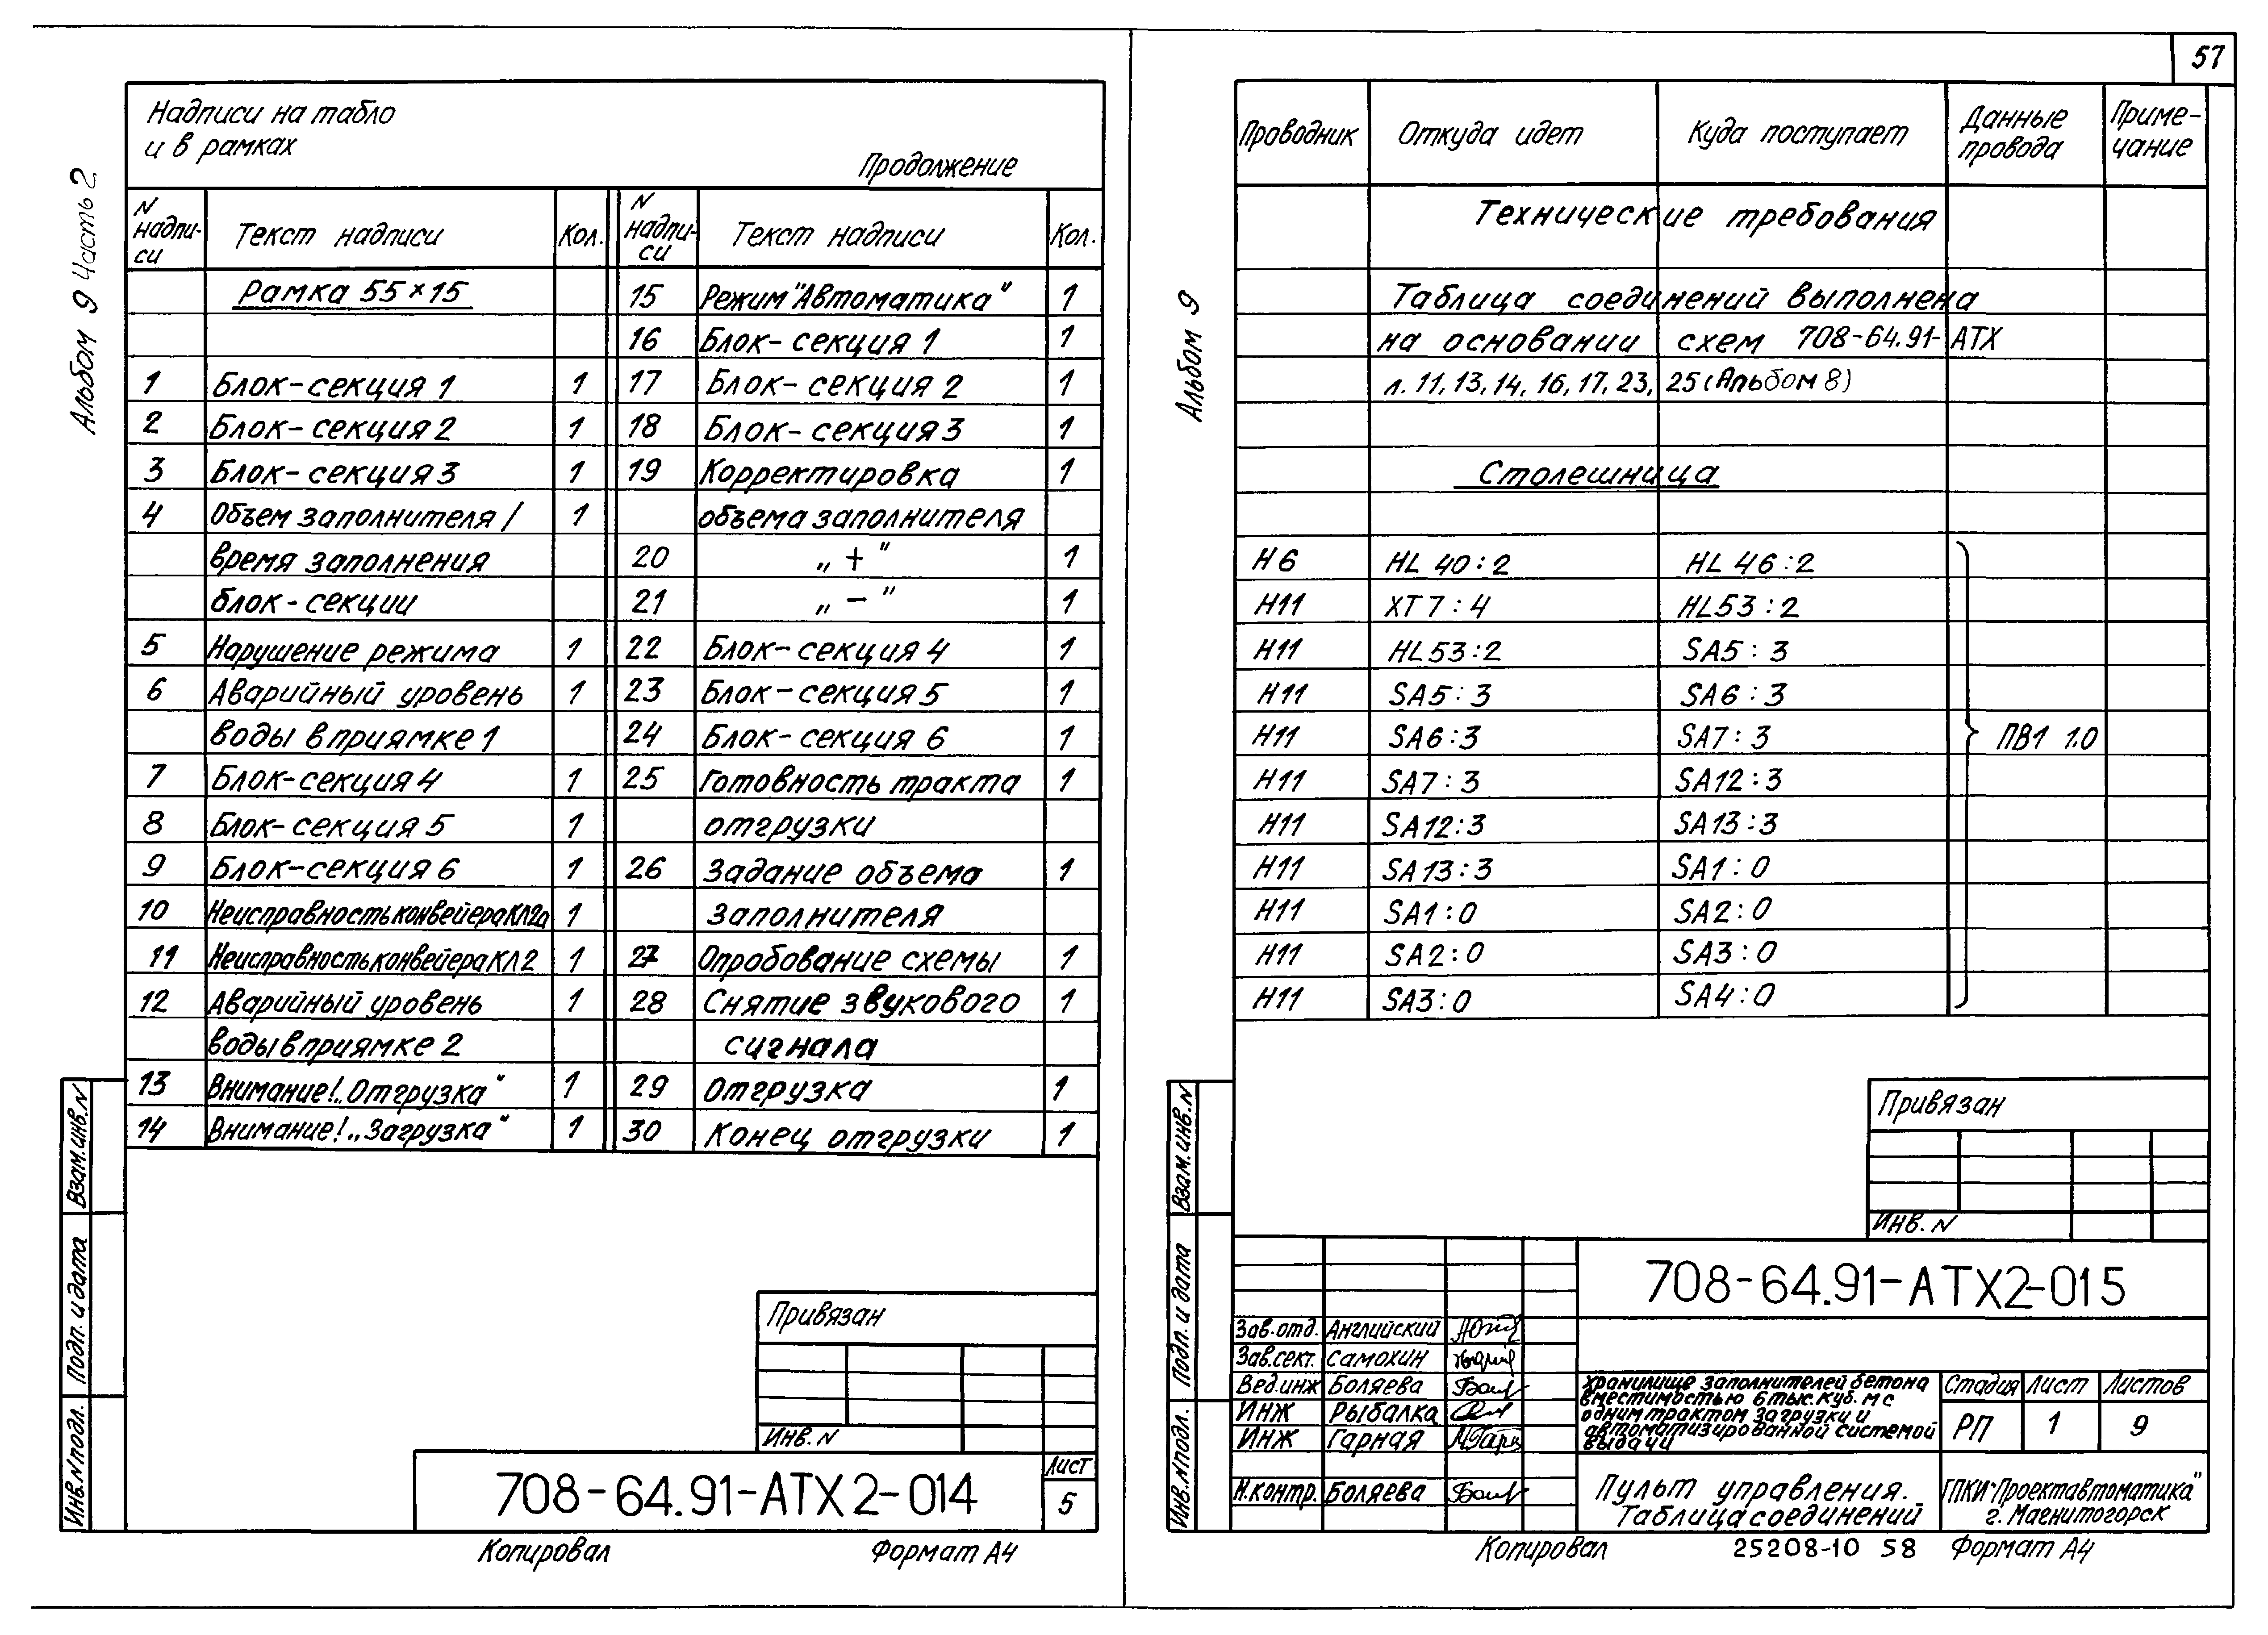 57
Альбом 9 Часть 2
Надписи на табло
и в рамках
Продолжение
N надпи-си Текст надписи Кол. N надпи-си Текст надписи Кол.
Рамка 55×15 15 Режим "Автоматика" 1
16 Блок-секция 1 1
1 Блок-секция 1 1 17 Блок-секция 2 1
2 Блок-секция 2 1 18 Блок-секция 3 1
3 Блок-секция 3 1 19 Корректировка 1
4 Объем заполнителя / 1 объема заполнителя
время заполнения 20 „ + " 1
блок-секции 21 „ − " 1
5 Нарушение режима 1 22 Блок-секция 4 1
6 Аварийный уровень 1 23 Блок-секция 5 1
воды в приямке 1 24 Блок-секция 6 1
7 Блок-секция 4 1 25 Готовность тракта 1
8 Блок-секция 5 1 отгрузки
9 Блок-секция 6 1 26 Задание объема 1
10 Неисправность конвейера КЛ2а 1 заполнителя
11 Неисправность конвейера КЛ2 1 27 Опробование схемы 1
12 Аварийный уровень 1 28 Снятие звукового 1
воды в приямке 2 сигнала
13 Внимание! „Отгрузка" 1 29 Отгрузка 1
14 Внимание! „Загрузка" 1 30 Конец отгрузки 1
Взам. инв. N
Подп. и дата
Инв. N подл.
Привязан
Инв. N
708-64.91-АТХ2-014
Лист
5
Копировал Формат А4
Альбом 9
Проводник Откуда идет Куда поступает Данные провода Приме-чание
Технические требования
Таблица соединений выполнена
на основании схем 708-64.91-АТХ
л. 11, 13, 14, 16, 17, 23, 25 (Альбом 8)
Столешница
Н6 HL 40:2 HL 46:2
Н11 XT7:4 HL53:2
Н11 HL53:2 SA5:3
Н11 SA5:3 SA6:3
Н11 SA6:3 SA7:3 ПВ1 1.0
Н11 SA7:3 SA12:3
Н11 SA12:3 SA13:3
Н11 SA13:3 SA1:0
Н11 SA1:0 SA2:0
Н11 SA2:0 SA3:0
Н11 SA3:0 SA4:0
Взам. инв. N
Подп. и дата
Инв. N подл.
Привязан
Инв. N
708-64.91-АТХ2-015
Зав. отд. Английский
Зав. сект. Самохин
Вед. инж Боляева
Инж Рыбалка
Инж Гарная
Н. контр. Боляева
Хранилище заполнителей бетона
вместимостью 6 тыс. куб. м с
одним трактом загрузки и
автоматизированной системой
выдачи
Стадия Лист Листов
РП 1 9
Пульт управления.
Таблица соединений
ГПКИ "Проектавтоматика"
г. Магнитогорск
Копировал 25208-10 58 Формат А4